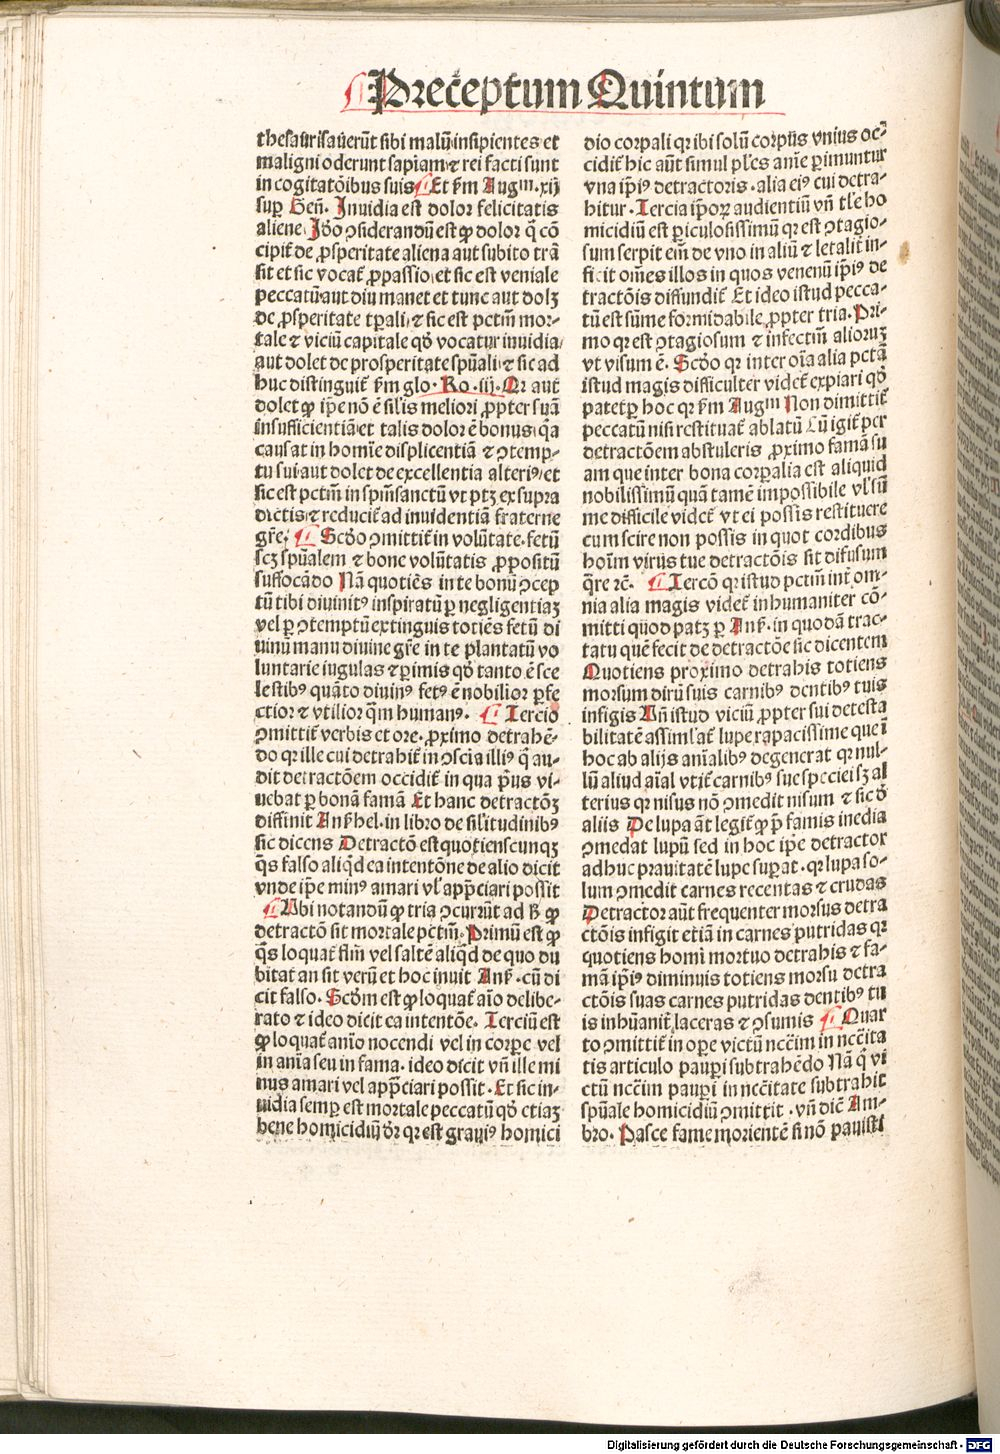 Preceptum Quintum
thesaurisauerūt sibi malū insipientes et
maligni oderunt sapiam ⁊ rei facti sunt
in cogitatōibus suis Et ẜm Augᵐ. xij
suꝑ Geñ. Inuidia est dolor felicitatis
aliene. Jdō ꝯsiderandū est ꝙ dolor q̄ cō
cipit̄ de ꝓsperitate aliena aut subito trā
sit et sic vocat̄ ꝓpassio et sic est veniale
peccatū aut diu manet et tunc aut dolꝫ
de ꝓsperitate tꝑali ⁊ sic est pctm̄ mor-
tale ⁊ viciū capitale qd̄ vocatur inuidia
aut dolet de prosperitate spūali ⁊ sic ad
huc distinguit̄ ẜm glo. Ro. iij. Qr aut
dolet ꝙ ip̄e nō ē sil'is meliori ꝓpter suā
insufficientiā et talis dolor ē bonus q̄a
causat in homīe displicentiā ⁊ ꝯtemp-
tū sui aut dolet de excellentia alteriꝰ et
sic est pctm̄ in spm̄sanctū vt ptꝫ ex supra
dictis ⁊ reducit̄ ad inuidentiā fraterne
gr̄e. Scd̄o ꝯmittit̄ in volūtate. fetū
scꝫ spūalem ⁊ bone volūtatis ꝓpositū
suffocādo Nā quotiēs in te bonū ꝯcep
tū tibi diuinitꝰ inspiratū ꝑ negligentiaꝫ
vel ꝑ ꝯtemptū extinguis totiēs fetū di
uinū manu diuine gr̄e in te plantatū vo
luntarie iugulas ⁊ ꝑimis qd̄ tanto ē sce
lestibꝰ quāto diuinꝰ fetꝰ ē nobilior ꝑfe
ctior ⁊ vtilior q̄m humanꝰ. Tercio
ꝯmittit̄ verbis et ore. ꝓximo detrahē-
do qr ille cui detrahit̄ in ꝯscīa illiꝰ q̄ au-
dit detractōem occidit̄ in qua pͥus vi-
uebat ꝑ bonā famā Et hanc detractōꝫ
diffinit Anẜhel. in libro de sil'itudinibꝰ
sic dicens Detractō est quotienscunqꝫ
q̄s falso aliqd̄ ea intentōne de alio dicit
vnde ip̄e minꝰ amari vl' app̄ciari possit
Ubi notandū ꝙ tria ꝯcurrūt ad ꝙ
detractō sit mortale pctm̄. Primū est ꝙ
q̄s loquat̄ flm̄ vel saltē aliqd̄ de quo du
bitat an sit verū et hoc inuit Anẜ. cū di
cit falso. Scd̄m est ꝙ loquat̄ aīo delibe-
rato ⁊ ideo dicit ea intentōe. Terciū est
ꝙ loquat̄ anīo nocendi vel in corꝑe vel
in anīa seu in fama. ideo dicit vn̄ ille mi
nus amari vel app̄ciari possit. Et sic in-
uidia semꝑ est mortale peccatū qd̄ etiaꝫ
bene homicidiū dr̄ qr est grauiꝰ homici
dio corpali qr ibi solū corpus vnius oc-
cidit̄ hic aūt simul pl'es anīe ꝑimuntur
vna ip̄iꝰ detractoris. alia eiꝰ cui detra-
hitur. Tercia ip̄oꝝ audientiū vn̄ tl'e ho
micidiū est ꝑiculosissimū qr est ꝯtagio-
sum serpit em̄ de vno in aliū ⁊ letalit̄ in-
ficit om̄es illos in quos venenū ip̄iꝰ de
tractōis diffundit̄ Et ideo istud pecca-
tū est sūme formidabile ꝓpter tria. Pri-
mo qr est ꝯtagiosum ⁊ infectiuū alioruꝫ
vt visum ē. Scd̄o qr inter oīa alia pctā
istud magis difficulter videt̄ expiari qd̄
patet ꝑ hoc qr ẜm Augᵐ Non dimittit̄
peccatū nisi restituat̄ ablatū Cū igit̄ per
detractōem abstuleris ꝓximo famā su
am que inter bona corꝑalia est aliquid
nobilissimū quā tamē impossibile vl' sū
me difficile videt̄ vt ei possis restituere
cum scire non possis in quot cordibus
hoīm virus tue detractōis sit difusum
q̄re ⁊c. Tercō qr istud pctm̄ int̄ om-
nia alia magis videt̄ inhumaniter cō-
mitti quod patꝫ ꝑ Anẜ. in quodā trac-
tatu quē fecit de detractōe sic dicentem
Quotiens proximo detrahis totiens
morsum dirū suis carnibꝰ dentibꝰ tuis
infigis Vn̄ istud viciū ꝓpter sui detesta
bilitatē assimlat̄ lupe rapacissime que ī
hoc ab alijs anīalibꝰ degenerat qr nul-
lū aliud aīal vtit̄ carnibꝰ sue speciei sꝫ al
terius qr nisus nō ꝯmedit nisum ⁊ sic d̄
aliis De lupa āt legit̄ ꝙ ꝓp̄ famis inedia
ꝯmedat lupū sed in hoc ip̄e detractor
adhuc prauitatē lupe suꝑat. qr lupa so-
lum ꝯmedit carnes recentas ⁊ crudas
Detractor aūt frequenter morsus detra
ctōis infigit etiā in carnes putridas qr
quotiens homī mortuo detrahis ⁊ fa-
mā ip̄iꝰ diminuis totiens morsu detra
ctōis suas carnes putridas dentibꝰ tu
is inhūanit̄ laceras ⁊ ꝯsumis Quar
to ꝯmittit̄ in oꝑe victū nccīm in nccītа
tis articulo pauꝑi subtrahēdo Nā q̄ vi
ctū nccīm pauꝑi in nccītate subtrahit
spūale homicidiū ꝯmittit. vn̄ dic̄ Am-
bro. Pasce fame morientē si nō pauisti
Digitalisierung gefördert durch die Deutsche Forschungsgemeinschaft - DFG